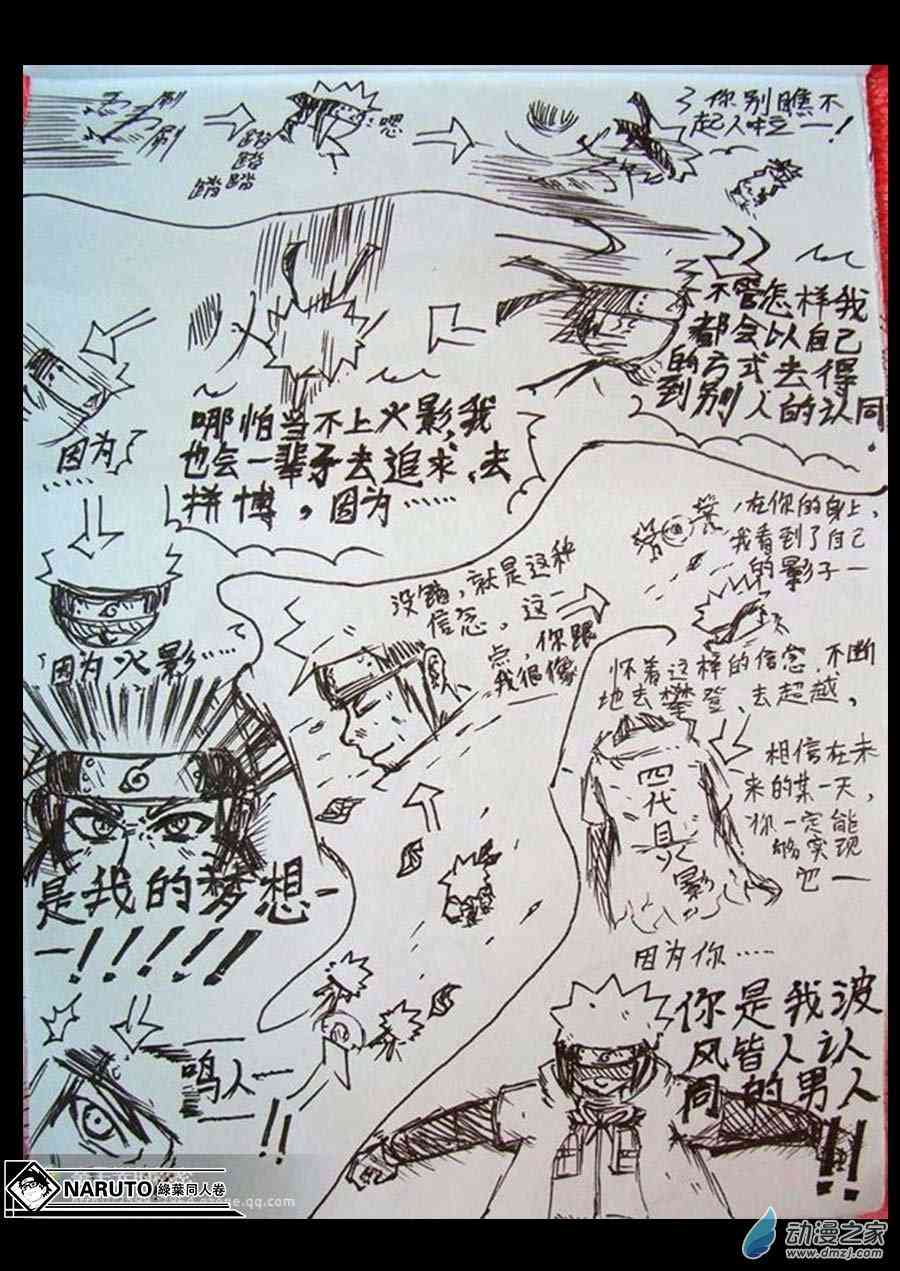 刷
刷
踏
踏
踏踏
嗯
你别瞧不
起人啦—!
不管怎样我
都会以自己
的方式去得
到别人的认同.
哪怕当不上火影,我
也会一辈子去追求、去
拼博,因为……
因为
……
因为火影……
是我的梦想—
—!!!!!!
鸣人—
!!
没错,就是这种
信念,这一
点,你跟
我很像
,在你的身上,
我看到了自己
的影子—
怀着这样的信念,不断
地去攀登、去超越,
相信在未
来的某一天,
你一定能
够实现
吧—
四代目火影
因为你……
你是我波
风皆人认
同的男人
!!
NARUTO 綠葉同人卷
动漫之家
www.dmzj.com